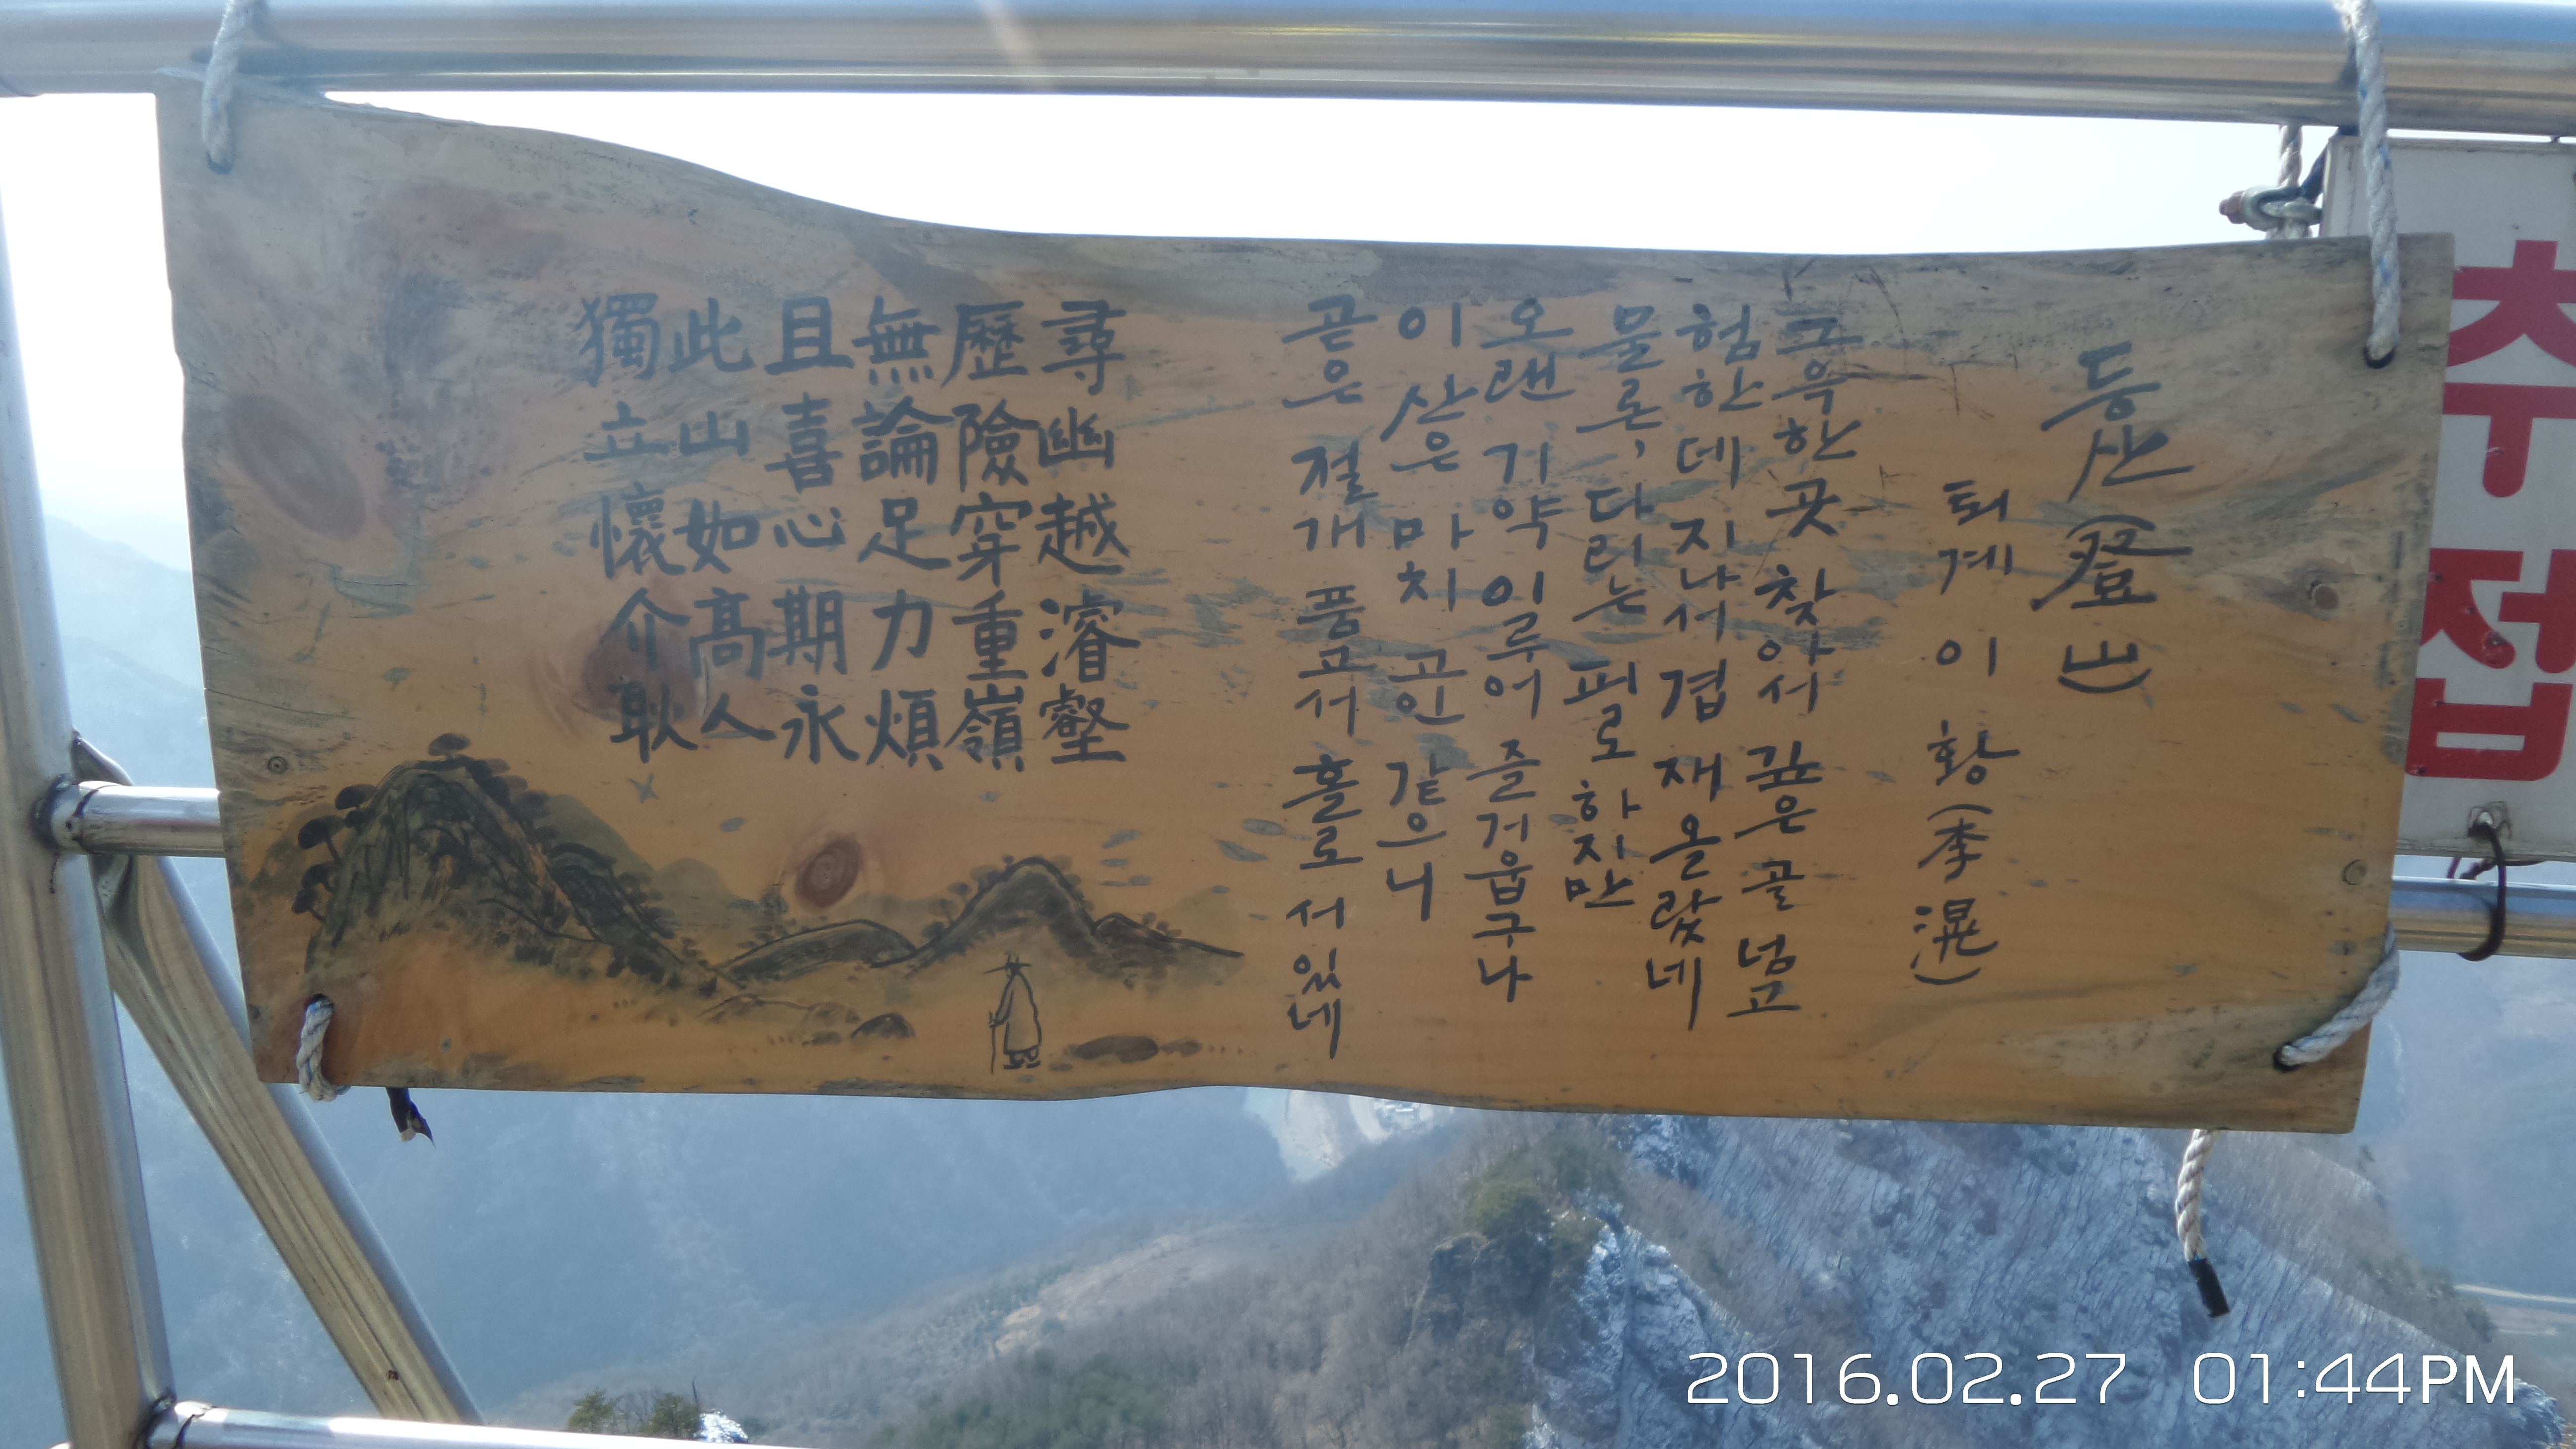 등산(登山)
퇴계 이 황(李滉)
그윽한 곳 찾아서 깊은 골 넘고
험한데 지나서 겹 재 올랐네
물론, 다리는 피로하지만
오랜 기약 이루어 즐거웁구나
이 산은 마치 고인 같으니
곧은 절개 품고서 홀로 서있네
尋幽越濬壑
歷險穿重嶺
無論足力煩
且喜心期永
此山如高人
獨立懷介耿
추
접
2016.02.27 01:44PM